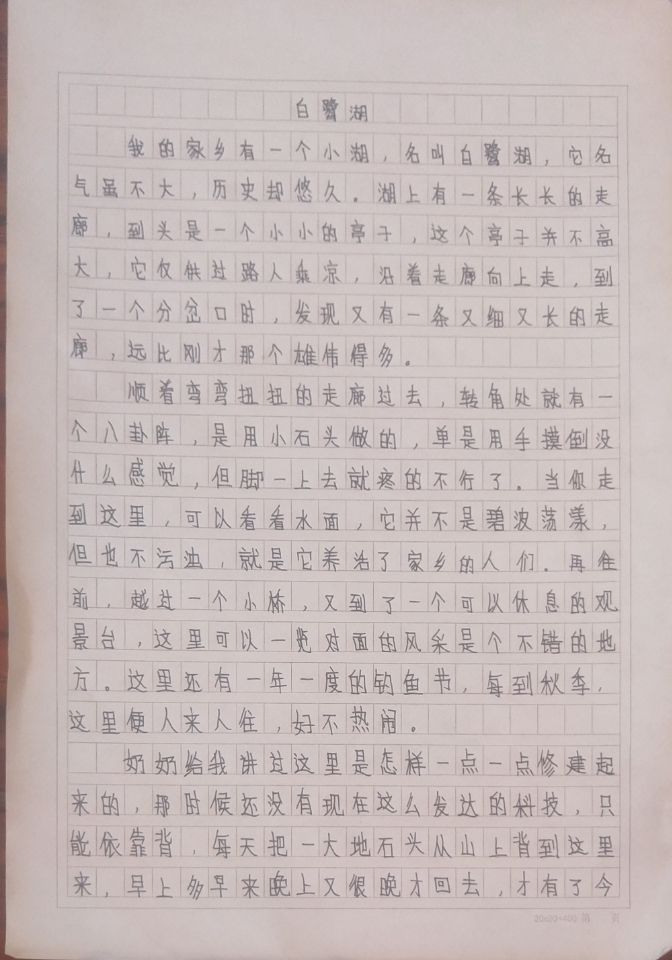 白鹭湖
我的家乡有一个小湖，名叫白鹭湖，它名
气虽不大，历史却悠久。湖上有一条长长的走
廊，到头是一个小小的亭子，这个亭子并不高
大，它仅供过路人乘凉，沿着走廊向上走，到
了一个分岔口时，发现又有一条又细又长的走
廊，远比刚才那个雄伟得多。
顺着弯弯扭扭的走廊过去，转角处就有一
个八卦阵，是用小石头做的，单是用手摸倒没
什么感觉，但脚一上去就疼的不行了。当你走
到这里，可以看看水面，它并不是碧波荡漾，
但也不污浊，就是它养活了家乡的人们。再往
前，越过一个小桥，又到了一个可以休息的观
景台，这里可以一览对面的风采是个不错的地
方。这里还有一年一度的钓鱼节，每到秋季，
这里便人来人往，好不热闹。
奶奶给我讲过这里是怎样一点一点修建起
来的，那时候还没有现在这么发达的科技，只
能依靠背，每天把一大地石头从山上背到这里
来，早上多早来晚上又很晚才回去，才有了今
20x20=400 第 页